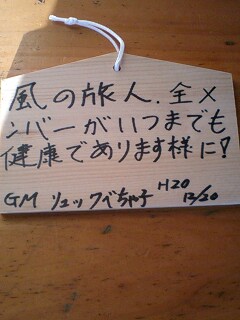 風の旅人.全メ
ンバーがいつまでも
健康であります様に!
GM リュックべちゃ子 H20 12/20